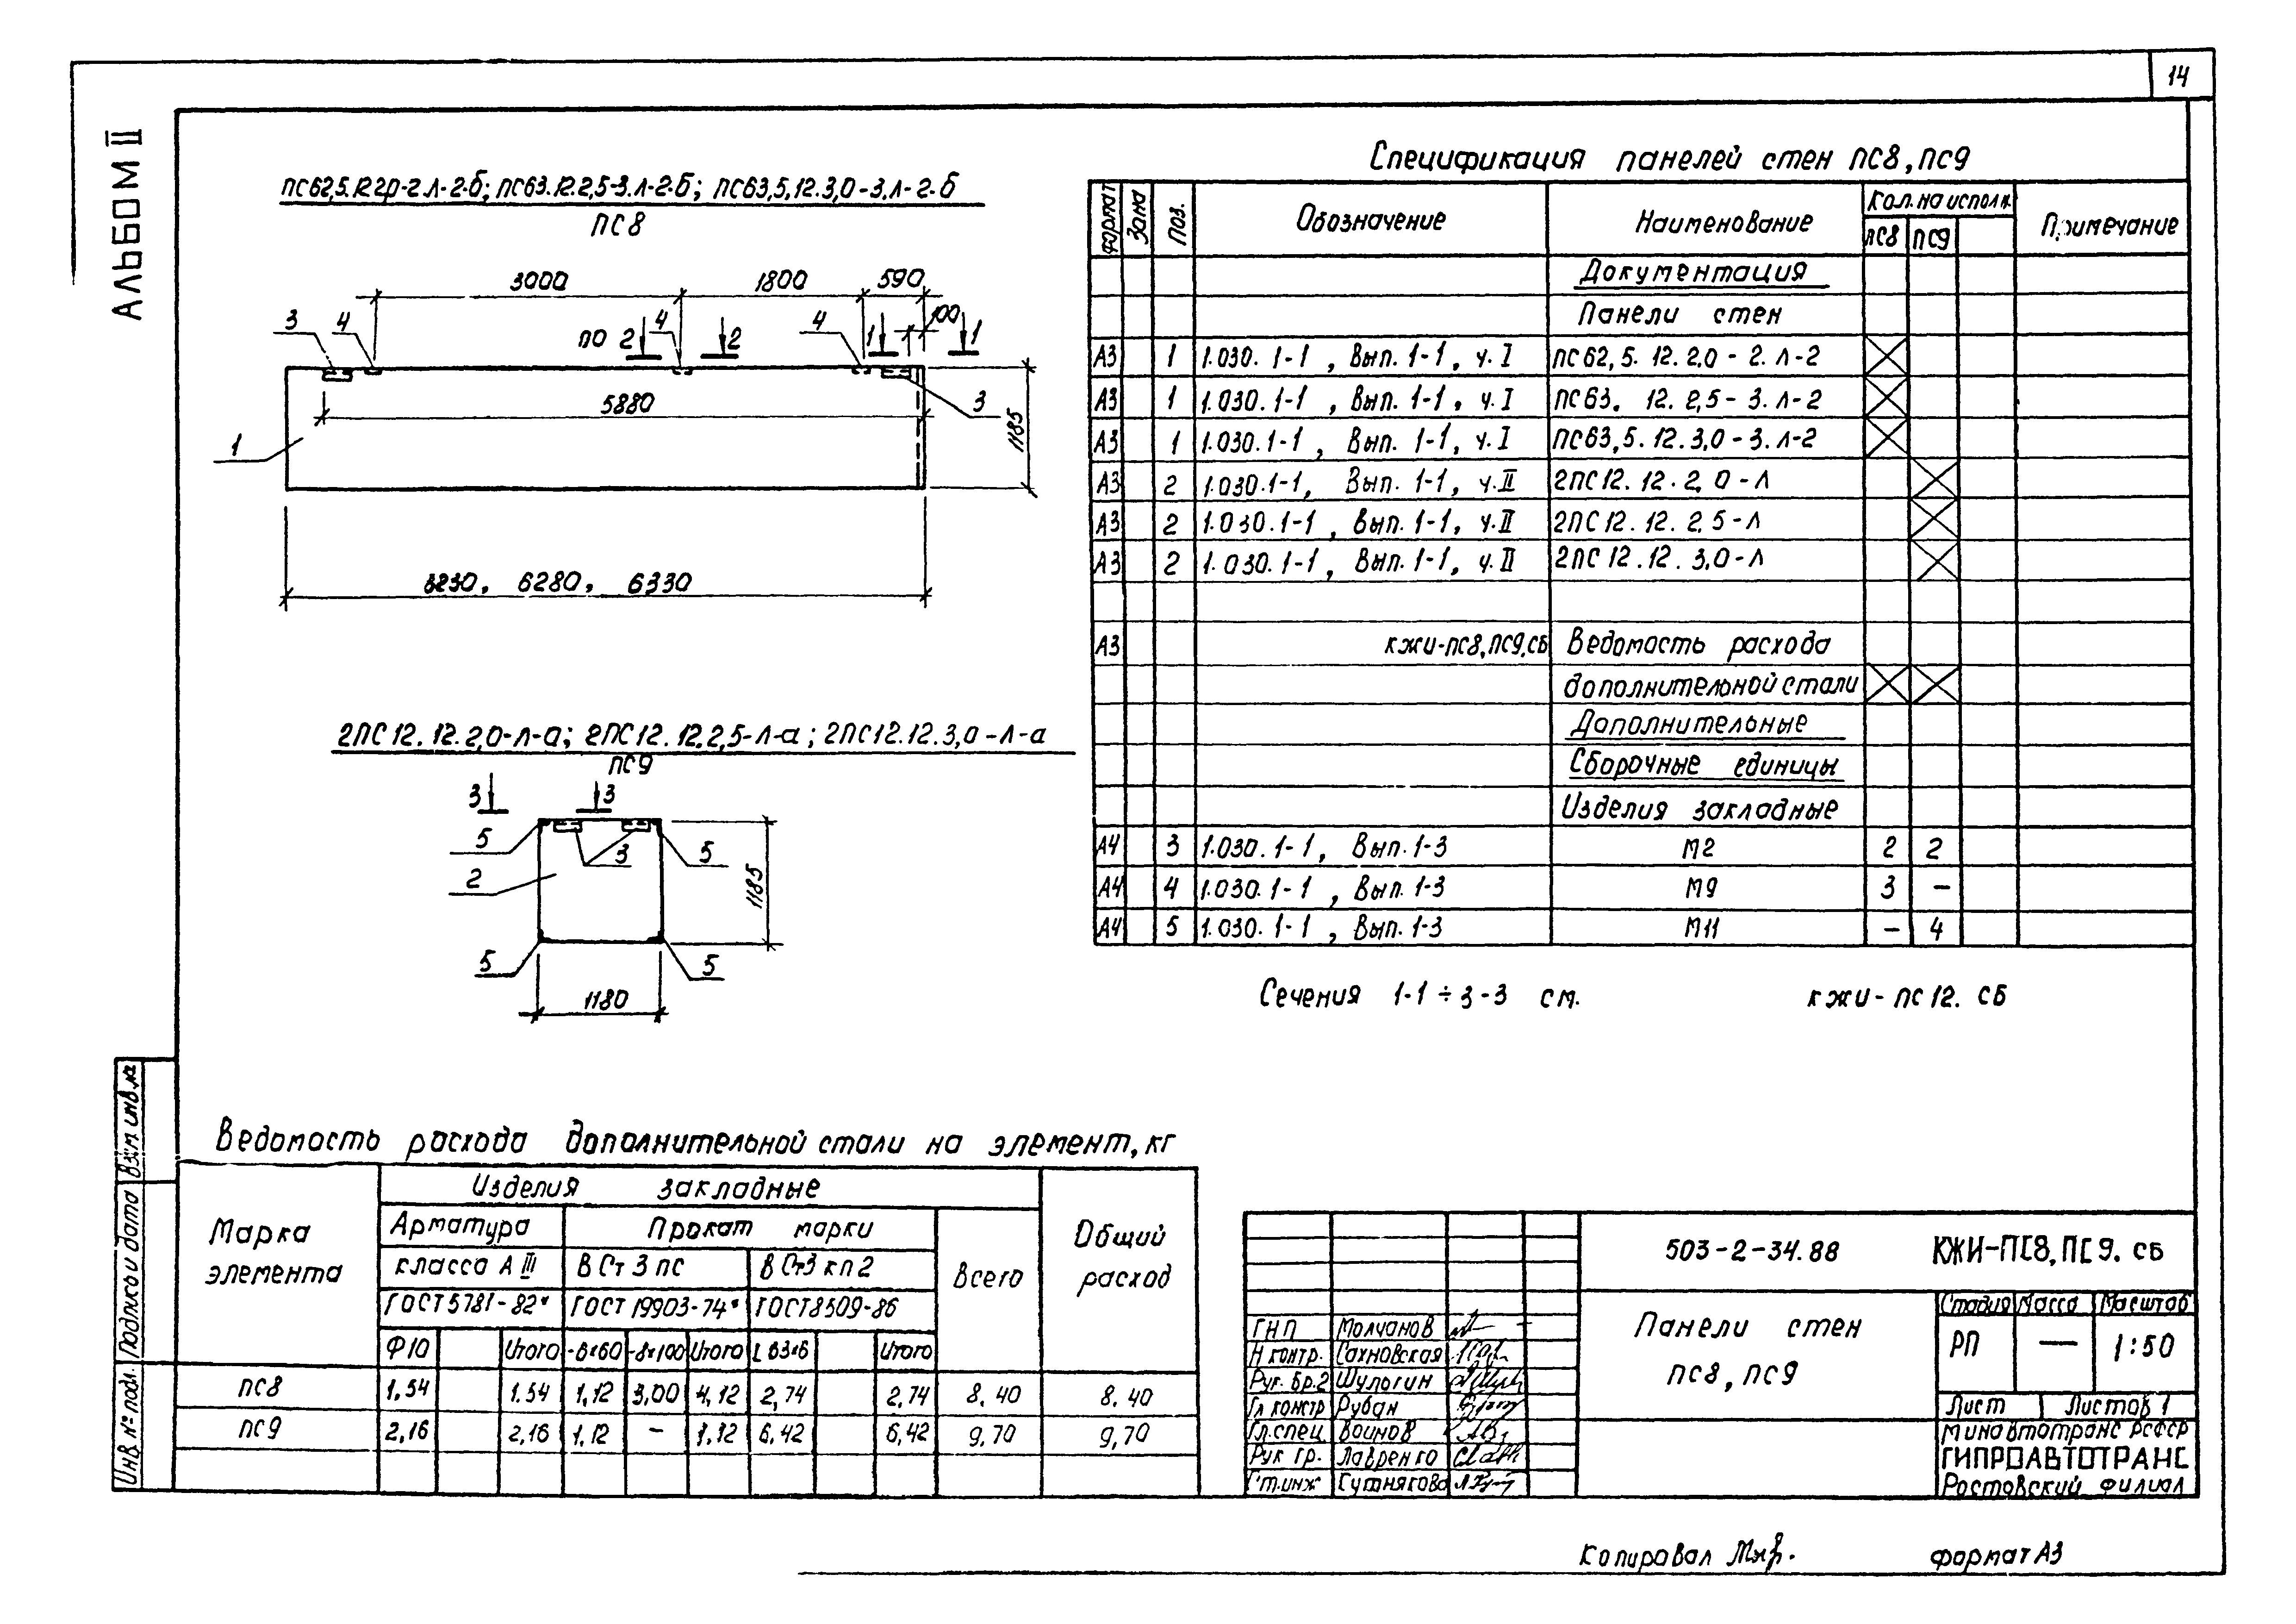 14
АЛЬБОМ II
ПС62,5.12.2,0-2.Л-2-б; ПС63.12.2,5-3.Л-2-б; ПС63,5.12.3,0-3.Л-2-б
ПС8
3000 1800 590
100
3 4 по 2 4 2 4 1 1
5880 3
1185
1
6230, 6280, 6330
2ПС12.12.2,0-Л-а; 2ПС12.12.2,5-Л-а; 2ПС12.12.3,0-Л-а
ПС9
3 3
5 3 5
2
1185
5 5
1180
Спецификация панелей стен ПС8, ПС9
Формат Зона Поз. Обозначение Наименование Кол. на исполн. Примечание
ПС8 ПС9
Документация
Панели стен
А3 1 1.030.1-1, Вып. 1-1, ч.I ПС62,5.12.2,0-2.Л-2
А3 1 1.030.1-1, Вып. 1-1, ч.I ПС63.12.2,5-3.Л-2
А3 1 1.030.1-1, Вып. 1-1, ч.I ПС63,5.12.3,0-3.Л-2
А3 2 1.030.1-1, Вып. 1-1, ч.II 2ПС12.12.2,0-Л
А3 2 1.030.1-1, Вып. 1-1, ч.II 2ПС12.12.2,5-Л
А3 2 1.030.1-1, Вып. 1-1, ч.II 2ПС12.12.3,0-Л
А3 КЖИ-ПС8,ПС9,СБ Ведомость расхода
дополнительной стали
Дополнительные
Сборочные единицы
Изделия закладные
А4 3 1.030.1-1, Вып. 1-3 М2 2 2
А4 4 1.030.1-1, Вып. 1-3 М9 3 –
А4 5 1.030.1-1, Вып. 1-3 М11 – 4
Сечения 1-1÷3-3 см. КЖИ-ПС12.СБ
Ведомость расхода дополнительной стали на элемент, кг
Марка элемента Изделия закладные Общий расход
Арматура Прокат марки Всего
класса АIII ВСт3пс ВСт3кп2
ГОСТ5781-82* ГОСТ19903-74* ГОСТ8509-86
Ф10 Итого -8×100 Итого L63×6 Итого
ПС8 1,54 1,54 1,12 3,00 4,12 2,74 2,74 8,40 8,40
ПС9 2,16 2,16 1,12 – 1,12 6,42 6,42 9,70 9,70
503-2-34.88 КЖИ-ПС8,ПС9.СБ
Панели стен
ПС8, ПС9
Стадия Масса Масштаб
РП — 1:50
Лист Листов 1
Минавтотранс РСФСР
ГИПРОАВТОТРАНС
Ростовский филиал
ГНП Молчанов
Н контр. Сахновская
Рук. бр.2 Шулогин
Гл констр Рубан
Гл.спец Воинов
Рук гр. Лавренко
Ст.инж Сутнякова
Инв № подл. Подпись и дата Взам инв №
Копировал
формат А3